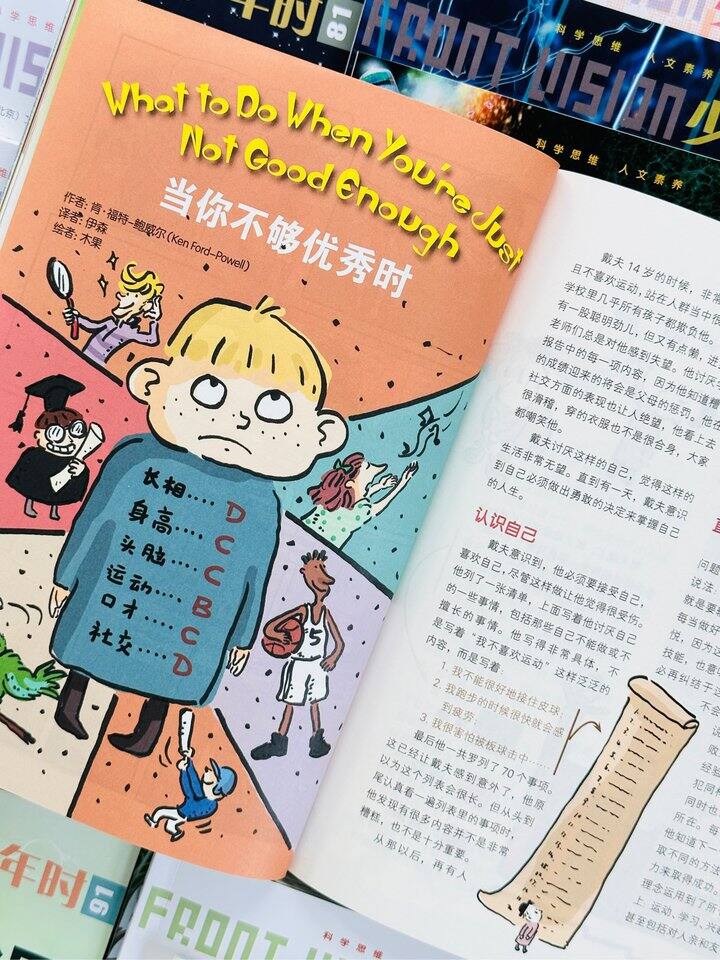 年时
81
科学思维 人文素养
FRONT VISION
少
科学思维 人文素养
What to Do When You're Just
Not Good Enough
当你不够优秀时
作者: 肯·福特-鲍威尔 (Ken Ford-Powell)
译者: 伊森
绘者: 木果
长相····· D
身高····· C
头脑····· C
运动····· B
口才····· C
社交····· D
5
戴夫 14 岁的时候,非常
且不喜欢运动,站在人群当中
学校里几乎所有孩子都欺负他。
有一股聪明劲儿,但又有点懒,进
老师们总是对他感到失望。他讨厌
报告中的每一项内容,因为他知道糟
的成绩迎来的将会是父母的惩罚。他在
社交方面的表现也让人绝望,他看上去
很滑稽,穿的衣服也不是很合身,大家
都嘲笑他。
戴夫讨厌这样的自己,觉得这样的
生活非常无望。直到有一天,戴夫意识
到自己必须做出勇敢的决定来掌握自己
的人生。
认识自己
戴夫意识到,他必须要接受自己,
喜欢自己,尽管这样做让他觉得很受伤。
他列了一张清单,上面写着他讨厌自己
的一些事情,包括那些自己不能做或不
擅长的事情。他写得非常具体,不
是写着“我不喜欢运动”这样泛泛的
内容,而是写着
1. 我不能很好地接住皮球;
2. 我跑步的时候很快就会感
到疲劳;
3. 我很害怕被板球击中……
最后他一共罗列了 70 个事项。
这已经让戴夫感到意外了,他原
以为这个列表会很长。但从头到
尾认真看一遍列表里的事项时,
他发现有很多内容并不是非常
糟糕,也不是十分重要。
从那以后,再有人
问题
说法
就是要
每当做好
悦,因为这
技能,也意
必再纠结于
不会
说
败
经验
犯同样
同时也
所在。每
他知道下一
取不同的方法
力来取得成功。
理念运用到了所
上:运动、学习、兴趣
甚至包括对人亲和友
年时
91
科学思维
FRONT